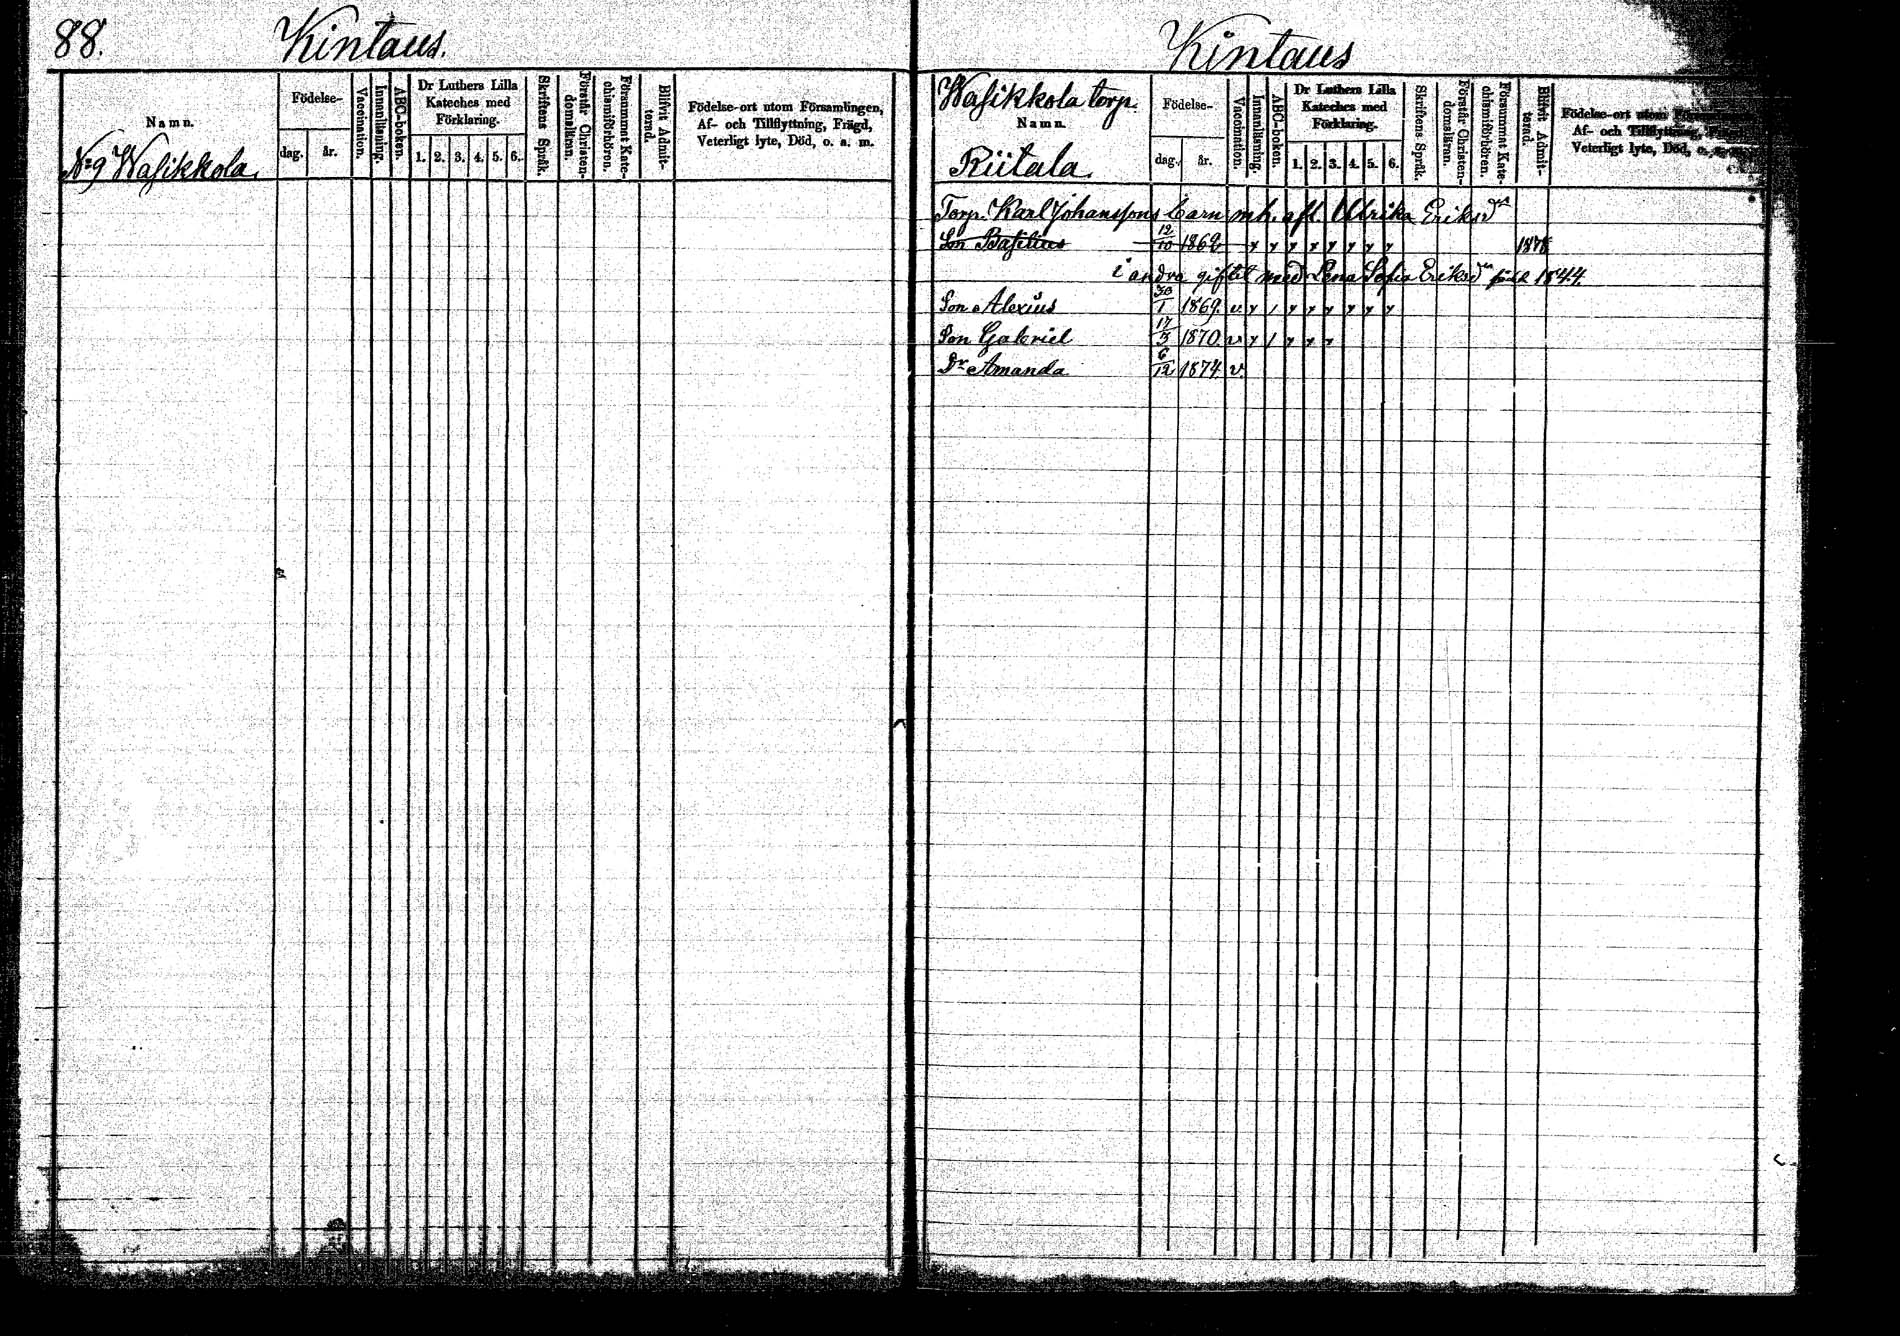 88. Kintaus.
Namn.
No 9 Wasikkola.
Födelse-
dag. år.
Vaccination.
Innanläsning.
ABC-boken.
Dr Luthers Lilla
Kateches med
Förklaring.
1. 2. 3. 4. 5. 6.
Skriftens Språk.
Förstår Christen-
domsläran.
Försummat Kate-
chismiförhören.
Blifvit Admit-
terad.
Födelse-ort utom Församlingen,
Af- och Tillflyttning, Frägd,
Veterligt lyte, Död, o. s. m.
Kintaus
Wasikkola torp.
Namn.
Riitala.
Födelse-
dag. år.
Vaccination.
Innanläsning.
ABC-boken.
Dr Luthers Lilla
Kateches med
Förklaring.
1. 2. 3. 4. 5. 6.
Skriftens Språk.
Förstår Christen-
domsläran.
Försummat Kate-
chismiförhören.
Blifvit Admit-
terad.
Födelse-ort utom
Af- och Tillflyttning,
Veterligt lyte, Död,
Torp. Karl Johanssons barn m. h. afl. Ulrika Eriksdr
Son Basilius 12/10 1862
i andra giftet med Lena Sofia Eriksdr född 1844.
Son Alexius 30/1 1869. v.
Son Gabriel 17/3 1870 v
Dr Amanda 6/12 1874 v.